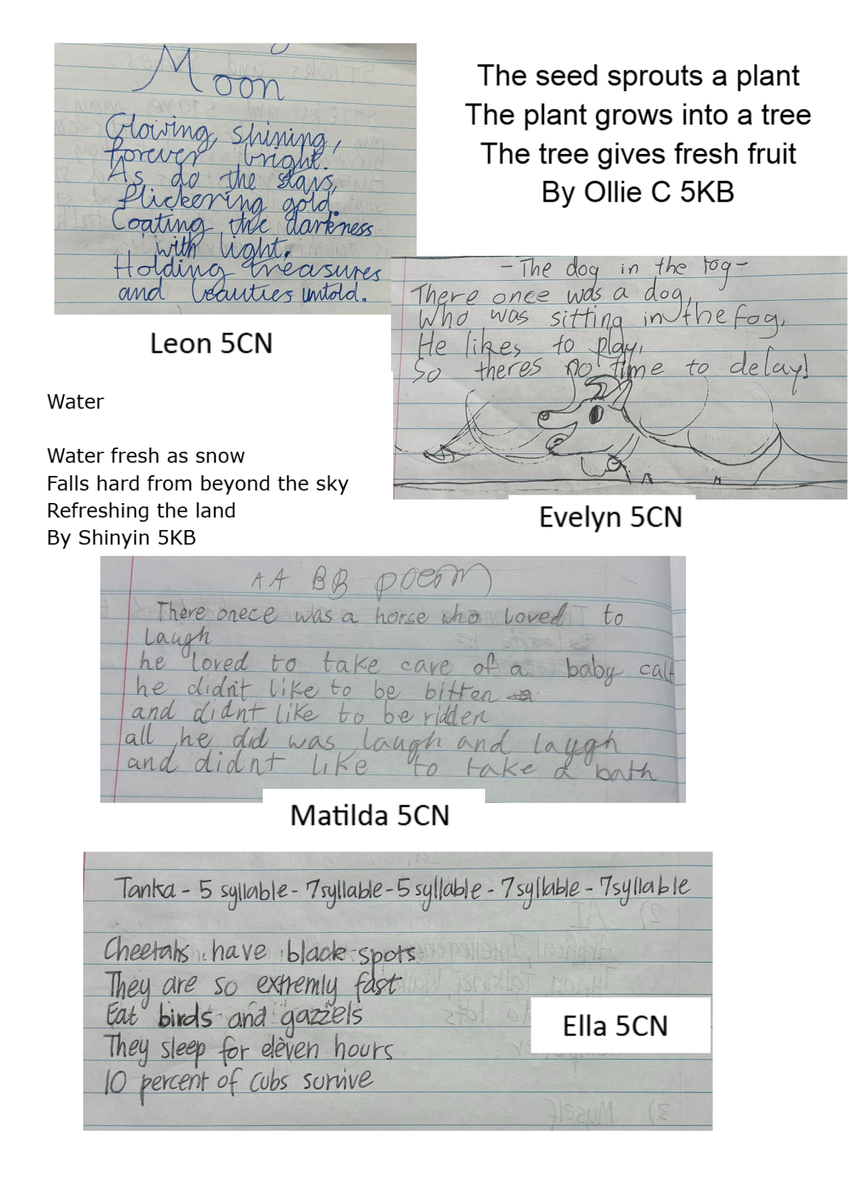 Moon
Glowing, shining,
forever bright.
As do the stars,
flickering gold.
Coating the darkness
with light.
Holding treasures
and beauties untold.
Leon 5CN
The seed sprouts a plant
The plant grows into a tree
The tree gives fresh fruit
By Ollie C 5KB
-The dog in the fog-
There once was a dog,
Who was sitting in the fog,
He likes to play,
So theres no time to delay!
Evelyn 5CN
Water
Water fresh as snow
Falls hard from beyond the sky
Refreshing the land
By Shinyin 5KB
AA BB poem
There onece was a horse who loved to
laugh
he loved to take care of a baby calf
he didn't like to be bitten
and didnt like to be ridden
all he did was laugh and laygh
and didnt like to take a bath
Matilda 5CN
Tanka - 5 syllable - 7syllable - 5 syllable - 7 syllable - 7syllable
Cheetahs have black spots
They are so extremly fast
Eat birds and gazzels
They sleep for eleven hours
10 percent of cubs survive
Ella 5CN